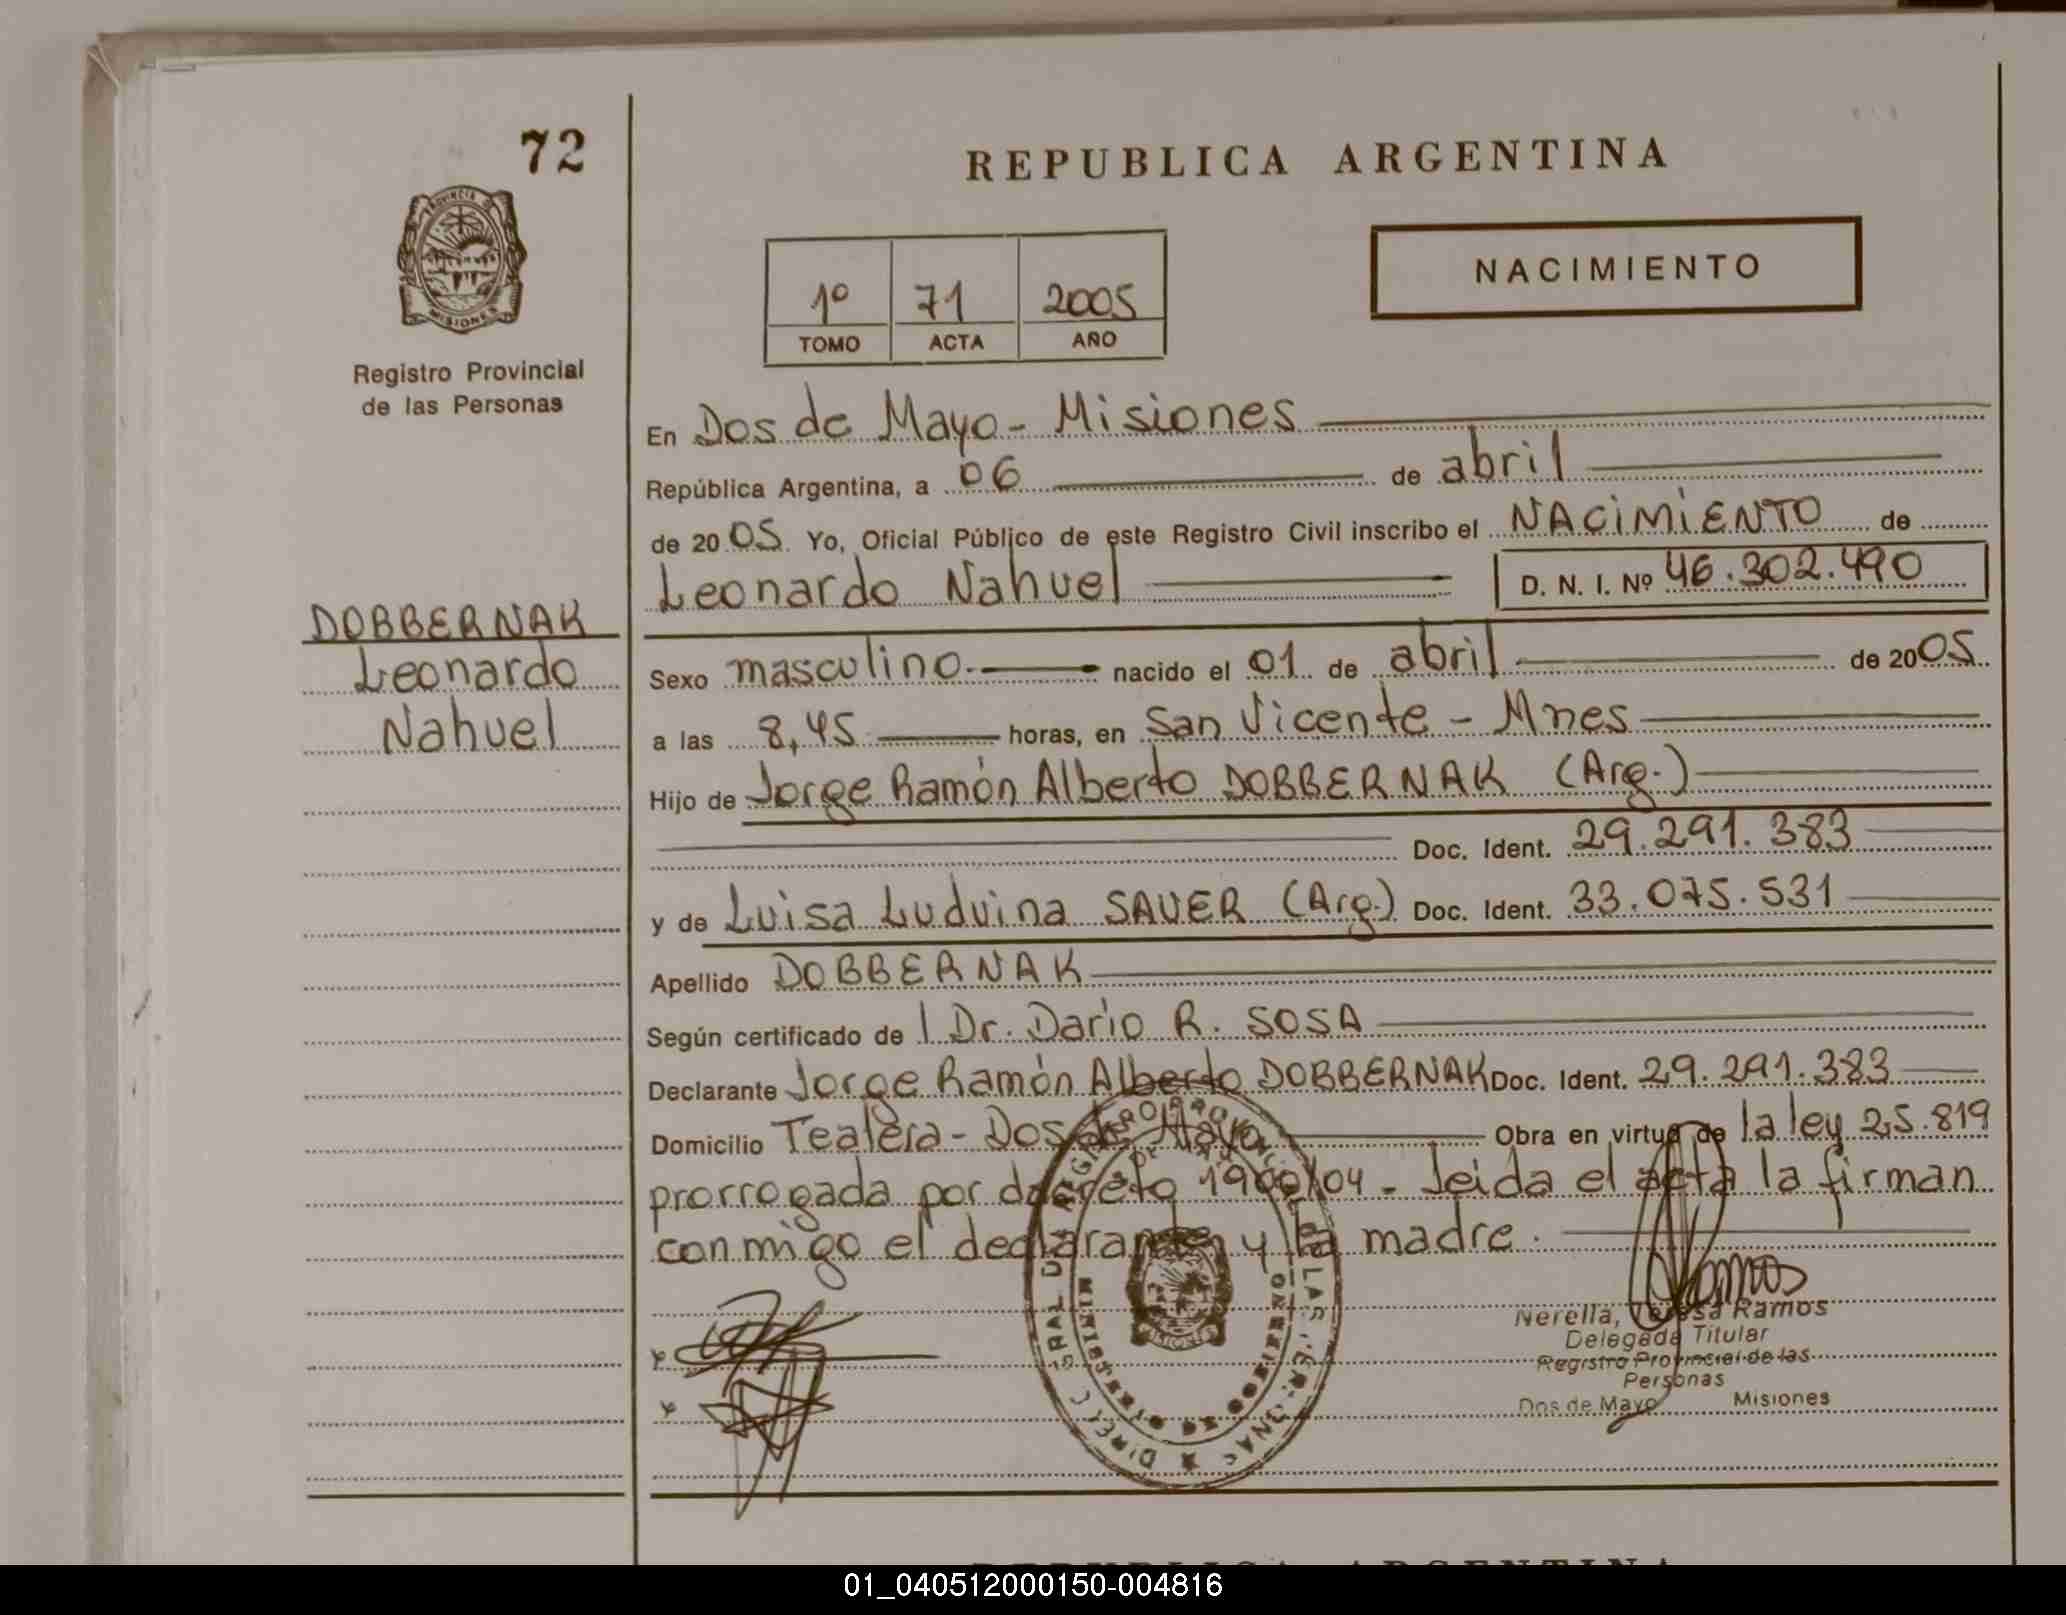 72
PROVINCIA DE
MISIONES
Registro Provincial
de las Personas
REPUBLICA ARGENTINA
NACIMIENTO
1º 71 2005
TOMO ACTA AÑO
En Dos de Mayo - Misiones
República Argentina, a 06 de abril
de 2005 Yo, Oficial Público de este Registro Civil inscribo el NACIMIENTO de
Leonardo Nahuel D. N. I. Nº 46.302.490
DOBBERNAK
Leonardo
Nahuel
Sexo masculino.- nacido el 01 de abril de 2005
a las 8,45 horas, en San Vicente - Mnes
Hijo de Jorge Ramón Alberto DOBBERNAK (Arg.)
Doc. Ident. 29.291.383
y de Luisa Luduina SAUER (Arg.) Doc. Ident. 33.075.531
Apellido DOBBERNAK
Según certificado de l Dr. Darío R. SOSA
Declarante Jorge Ramón Alberto DOBBERNAK Doc. Ident. 29.291.383
Domicilio Tealera - Dos de Mayo Obra en virtud de la ley 25.819
prorrogada por decreto 1900/04 - Leida el acta la firman
conmigo el declarante y la madre.
Ramos
Nerella, Teresa Ramos
Delegada Titular
Registro Provincial de las
Personas
Dos de Mayo Misiones
REPUBLICA ARGENTINA
01_040512000150-004816